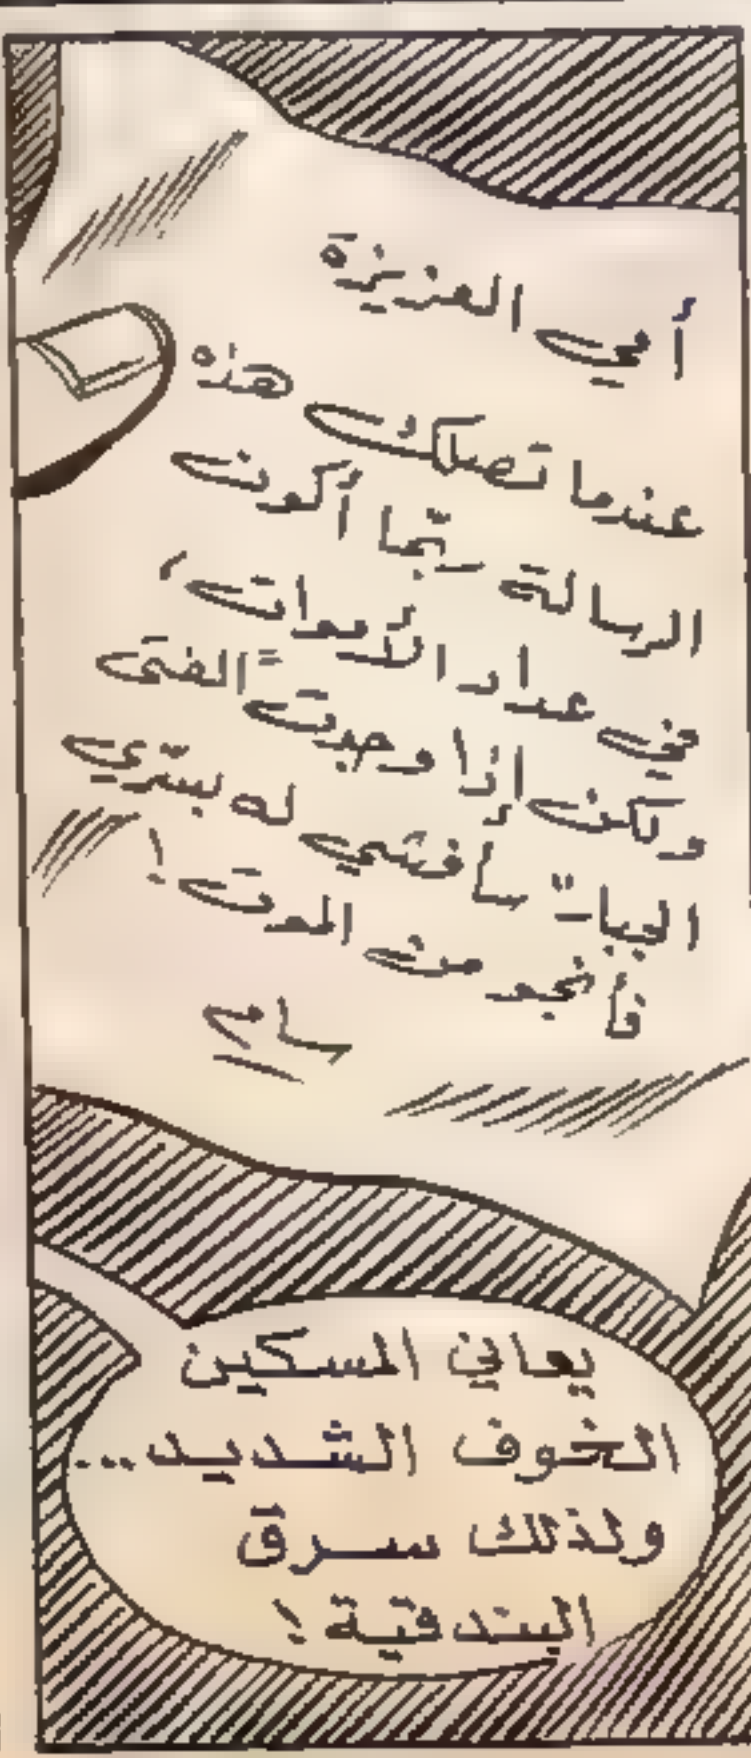 أمي العزيزة
عندما تصلك هذه
الرسالة ربّما أكون
في عداد الأموات،
ولكن إذا وجدت "الفتى
الجبار" سأفشي له بسرّي
فأنجو من الموت!
سامي
يعاني المسكين
الخوف الشديد...
ولذلك سرق
البندقية!